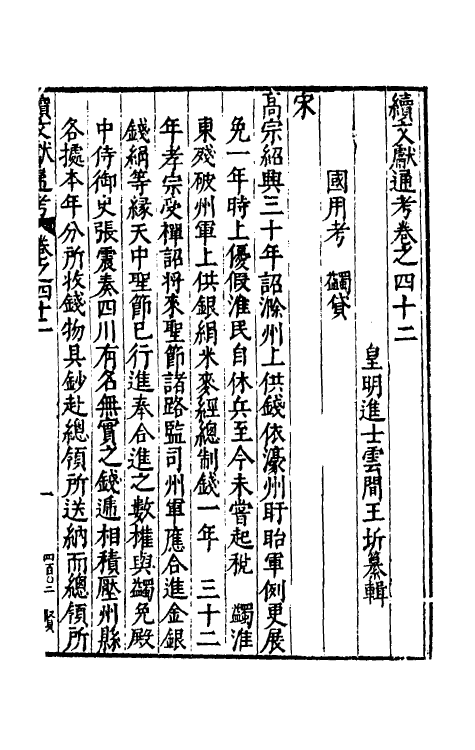 續文獻通考卷之四十二
皇明進士雲間王圻纂輯
國用考 蠲貸
宋
高宗紹興三十年詔滁州上供錢依濠州盱眙軍例更展
免一年時上優假淮民自休兵至今未嘗起稅 蠲淮
東殘破州軍上供銀絹米麥經總制錢一年 三十二
年孝宗受禪詔將來聖節諸路監司州軍應合進金銀
錢絹等緣天中聖節已行進奉合進之數權與蠲免殿
中侍御史張震奏四川有名無實之錢遞相積壓州縣
各據本年分所收錢物具鈔赴總領所送納而總領所
續文獻通考 卷之四十二
一
四百〇二 賢